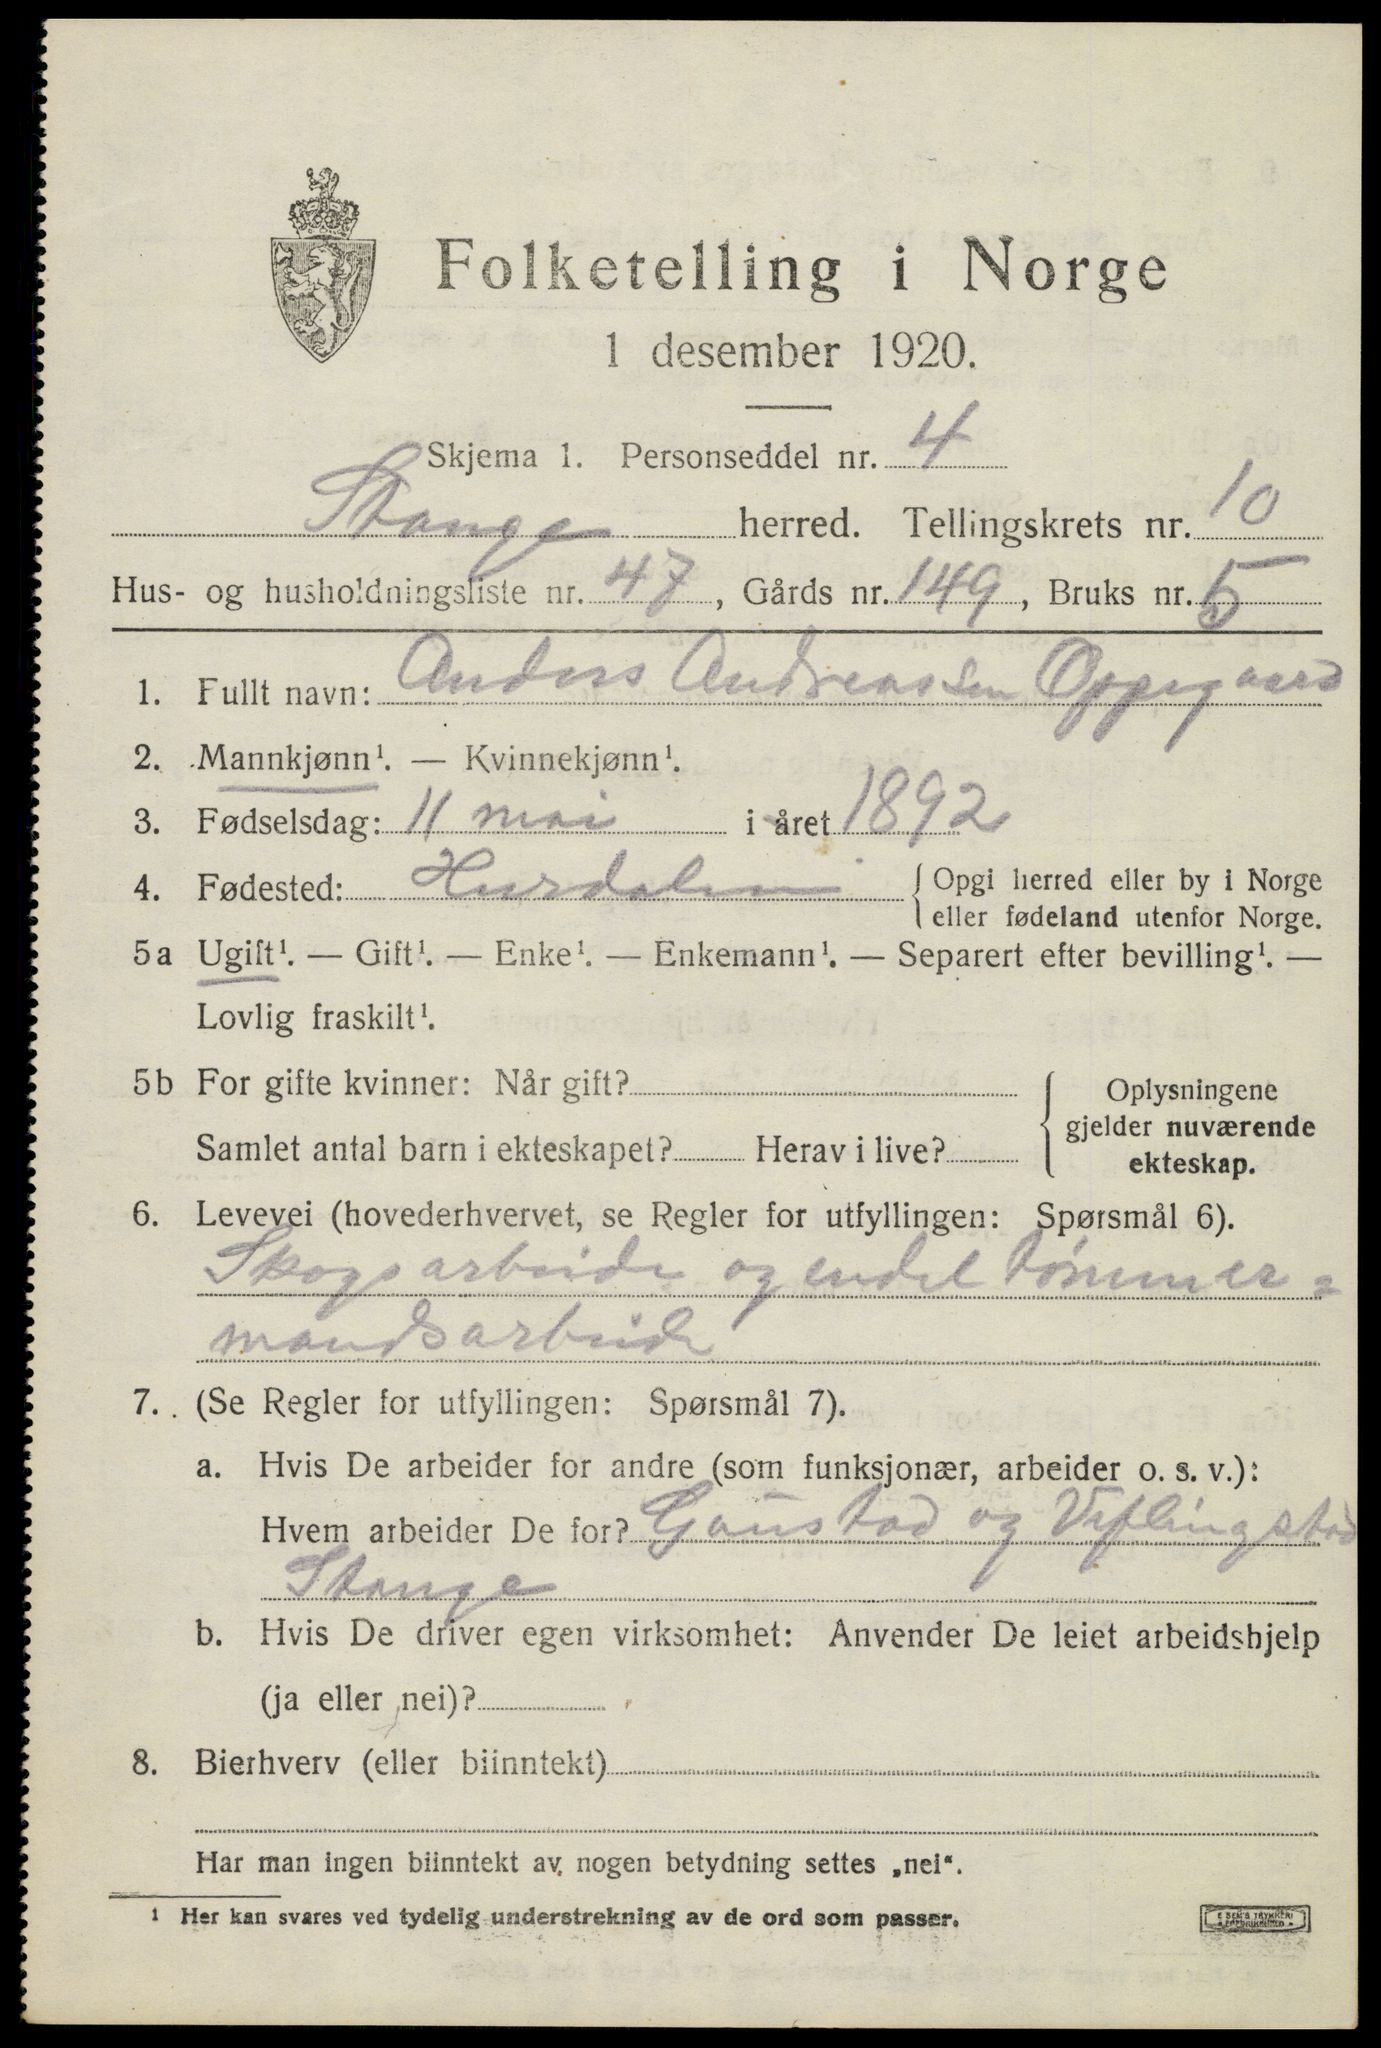 Folketelling i Norge
1 desember 1920.
Skjema 1. Personseddel nr. 4
Stange herred. Tellingskrets nr. 10
Hus- og husholdningsliste nr. 47, Gårds nr. 149, Bruks nr. 5
1. Fullt navn: Anders Andreassen Oppegaard
2. Mannkjønn¹. — Kvinnekjønn¹.
3. Fødselsdag: 11 mai i året 1892
4. Fødested: Hurdalen { Opgi herred eller by i Norge
eller fødeland utenfor Norge.
5a Ugift¹. — Gift¹. — Enke¹. — Enkemann¹. — Separert efter bevilling¹. —
Lovlig fraskilt¹.
5b For gifte kvinner: Når gift?
Samlet antal barn i ekteskapet? Herav i live?
Oplysningene
gjelder nuværende
ekteskap.
6. Levevei (hovederhvervet, se Regler for utfyllingen: Spørsmål 6).
Skogsarbeide og endel tømmer=
mandsarbeide
7. (Se Regler for utfyllingen: Spørsmål 7).
a. Hvis De arbeider for andre (som funksjonær, arbeider o. s. v.):
Hvem arbeider De for? Gaustad og Viflingstad
Stange
b. Hvis De driver egen virksomhet: Anvender De leiet arbeidshjelp
(ja eller nei)?
8. Bierhverv (eller biinntekt)
Har man ingen biinntekt av nogen betydning settes „nei“.
¹ Her kan svares ved tydelig understrekning av de ord som passer.